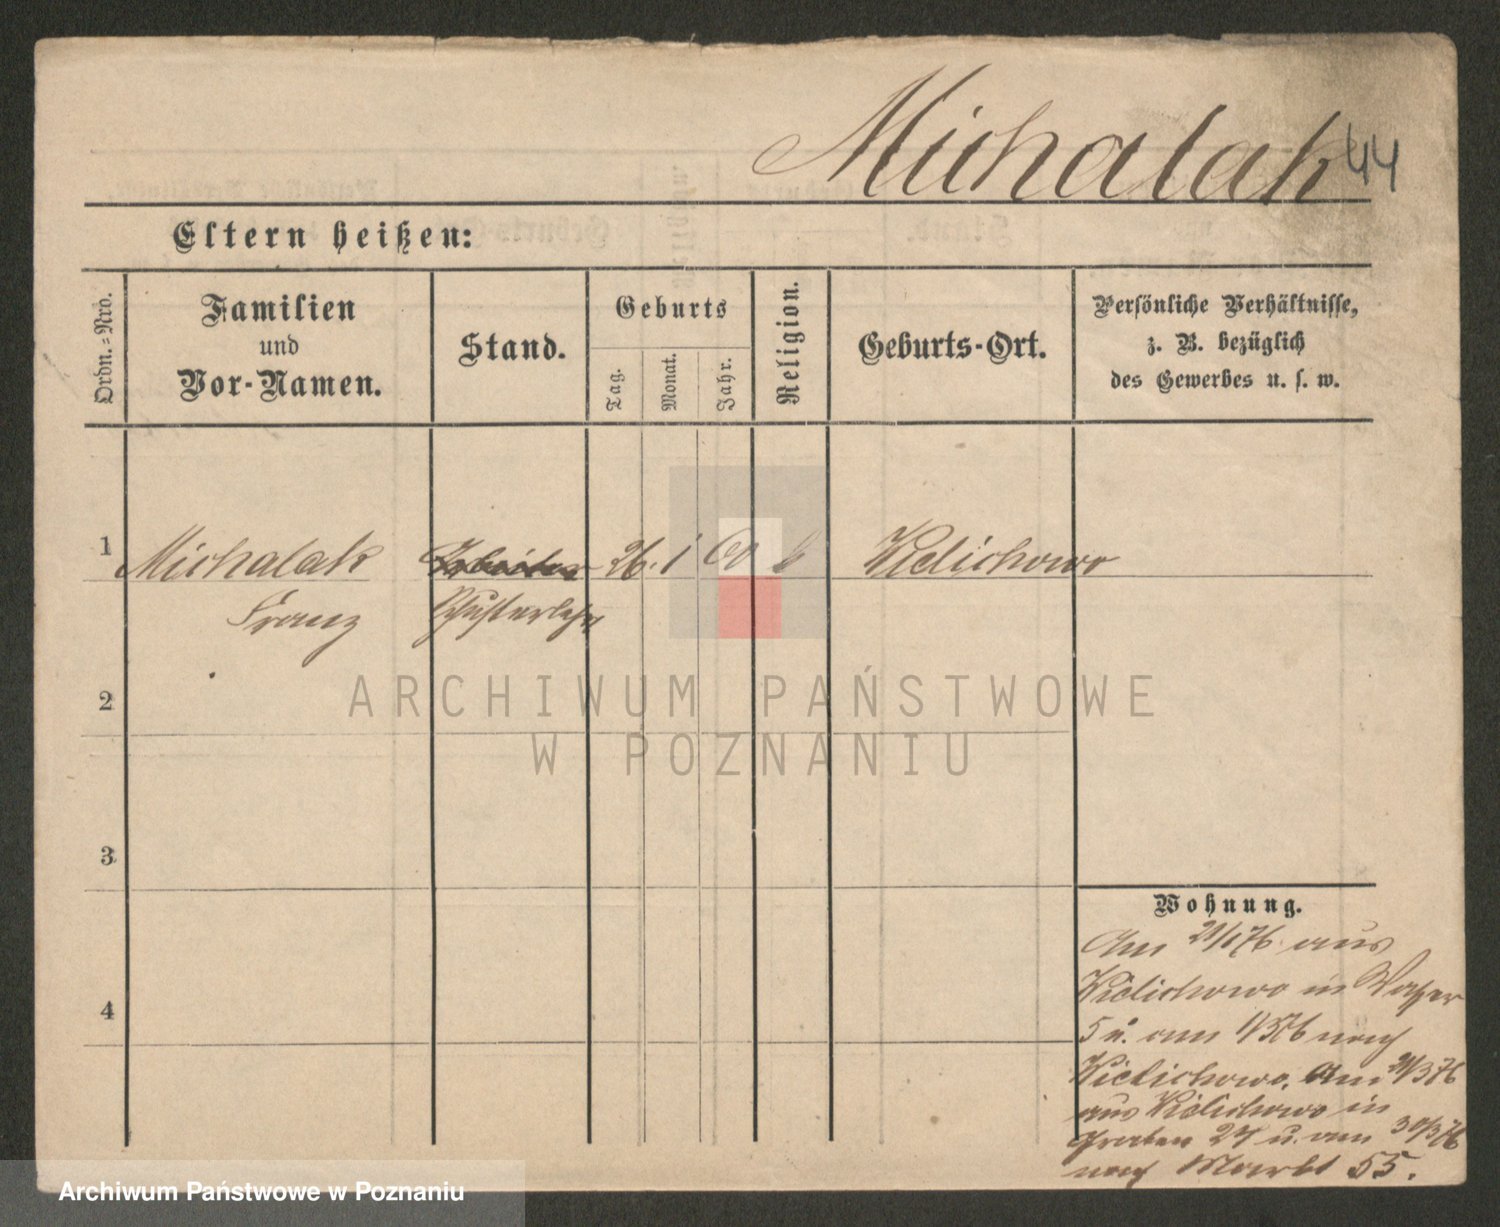 Michalak 44
Eltern heißen:
Ordn.=Nro.
Familien
und
Vor-Namen.
Stand.
Geburts
Tag.
Monat.
Jahr.
Religion.
Geburts-Ort.
Persönliche Verhältnisse,
z. B. bezüglich
des Gewerbes u. s. w.
1 Michalak 26. 1 60 k Wielichowo
Franz Schusterlehr
2
3
4
Wohnung.
Am 21/1 76 aus
Wielichowo in Wasser
5 u. am 1/3 76 nach
Wielichowo. Am 21/3 76
aus Wielichowo in
Graben 27 u. am 30/3 76
nach Markt 55.
ARCHIWUM PAŃSTWOWE
W POZNANIU
Archiwum Państwowe w Poznaniu